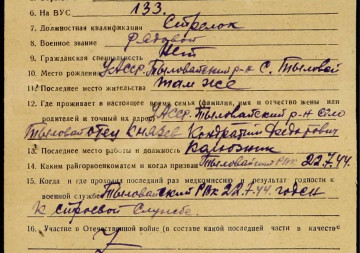 6. На ВУС 133.
7. Должностная квалификация Стрелок
8. Военное звание рядовой
9. Гражданская специальность нет
10. Место рождения УАССР. Тыловайский р-н с. Тыловай
11. Последнее место жительства там же
12. Где проживает в настоящее время семья (фамилия, имя и отчество жены или
родителей и точный их адрес) УАССР. Тыловайский р-н село
Тыловай отец Князев Кондратий Федорович
13. Последнее место работы и должность колхозник
14. Каким райгорвоенкоматом и когда призван Тыловайский РВК 22.7.44
15. Когда и где проходил раз медкомиссию и результат годности к
военной службе Тыловайский РВК 22.7.44. годен
к строевой службе
16. Участие в Отечественной войне (в составе какой последней части в качестве